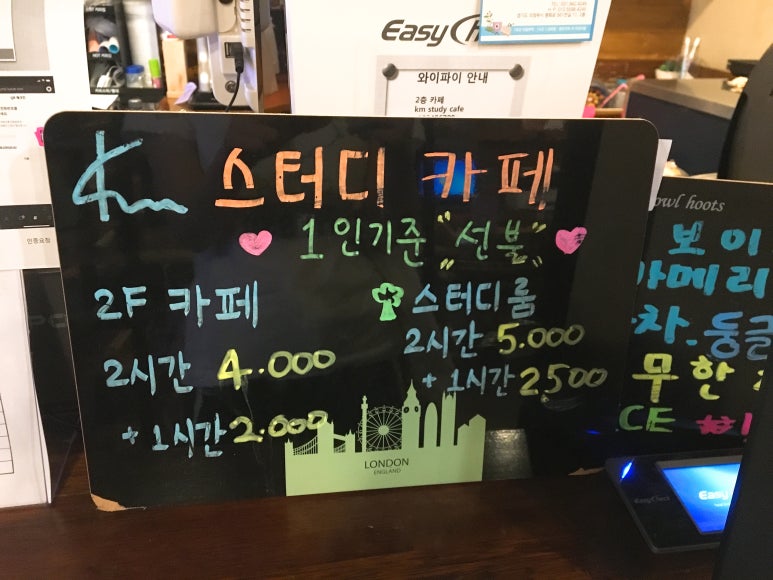 EasyCheck
와이파이 안내
2층 카페
km study cafe
Km 스터디 카페
1인기준 "선불"
2F 카페
2시간 4.000
+ 1시간 2.000
스터디룸
2시간 5.000
+ 1시간 2,500
LONDON
ENGLAND
owl hoots
보이
아메리
차. 둥글
무한
CE
EasyCheck
Easy
인증요청